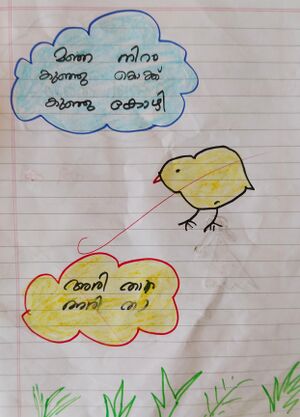 മഞ്ഞ നിറം
കുഞ്ഞു
കുഞ്ഞു കോഴി
അരി താ
അരി താ